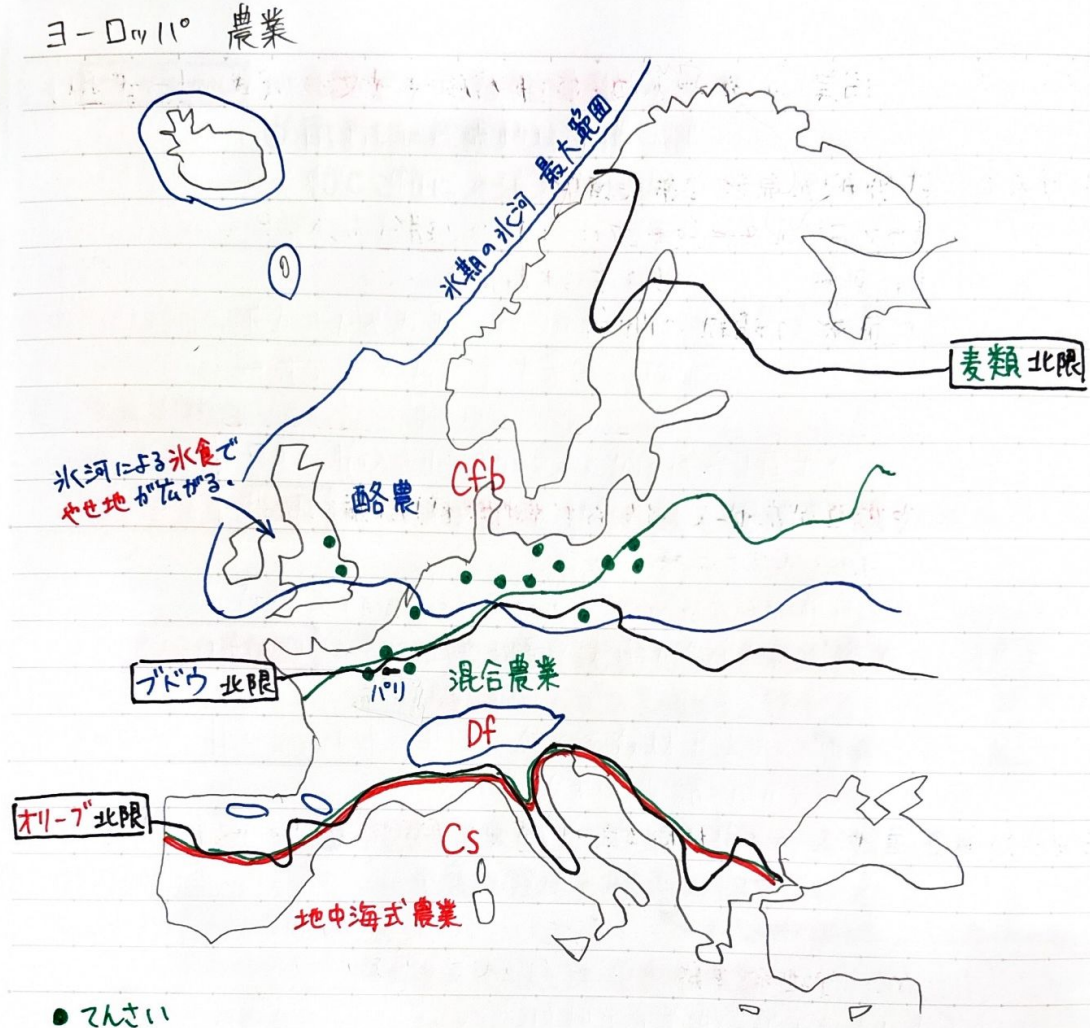 ヨーロッパ 農業
氷期の氷河 最大範囲
麦類北限
氷河による氷食で
やせ地が広がる。
酪農
Cfb
ブドウ北限
パリ
混合農業
Df
オリーブ北限
Cs
地中海式農業
てんさい